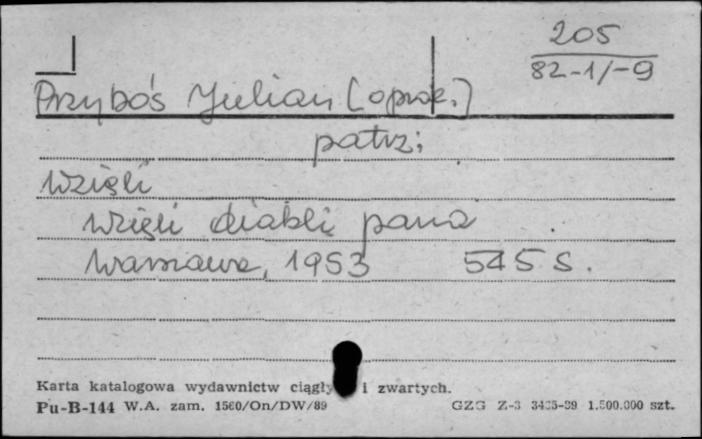 205
82-1/-9
Przyboś Julian [oprac.]
patrz:
Wzięli
Wzięli diabli pana
Warszawa, 1953 545 s.
Karta katalogowa wydawnictw ciągły i zwartych.
Pu-B-144 W.A. zam. 1560/On/DW/89 GZG Z-3 1.500.000 szt.